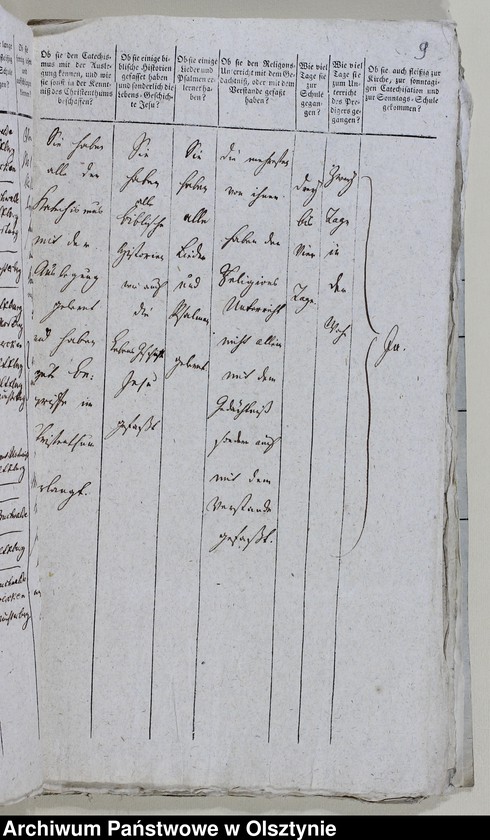 9
Ob sie den Catechis-
mus mit der Ausle-
gung kennen, und wie
sie sonst in der Kennt-
niß des Christenthums
beschaffen?
Ob sie einige bi-
blische Historien
gefasset haben
und sonderlich die
Lebens-Geschich-
te Jesu?
Ob sie einige
Lieder und
Psalmen er-
lernet ha-
ben?
Ob sie den Religions-
Unterricht mit dem Ge-
dächtniß, oder mit dem
Verstande gefaßt
haben?
Wie viel
Tage sie
zur
Schule
gegan-
gen?
Wie viel
Tage sie
zum Un-
terricht
des Pre-
digers ge-
gangen?
Ob sie auch fleißig zur
Kirche, zur sonntägi-
gen Catechisation und
zur Sonntags-Schule
gekommen?
Sie haben
alle den
Katechismus
mit der
Auslegung
gelernt
und haben
gute Be-
griffe im
Christenthum
erlangt.
Sie
haben
alle
biblische
Historien
wie auch
die
Lebensgeschichte
Jesu
gefaßt
Sie
haben
alle
Lieder
und
Psalmen
gelernt
Die mehrsten
von ihnen
haben den
Religions
Unterricht
nicht allein
mit dem
Gedächtniß
sondern auch
mit dem
Verstande
gefaßt.
drey
bis
vier
Tage
Zwey
Tage
in
der
Woche
Ja.
Archiwum Państwowe w Olsztynie